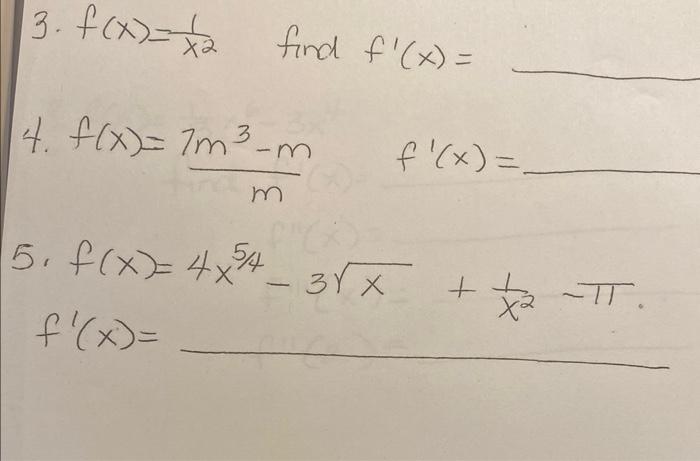 3. f(x)=1/x² find f'(x) = ________
4. f(x)= (7m³-m)/m f'(x)=________
5. f(x)= 4x^(5/4) - 3√x + 1/x² - π.
f'(x)= ________